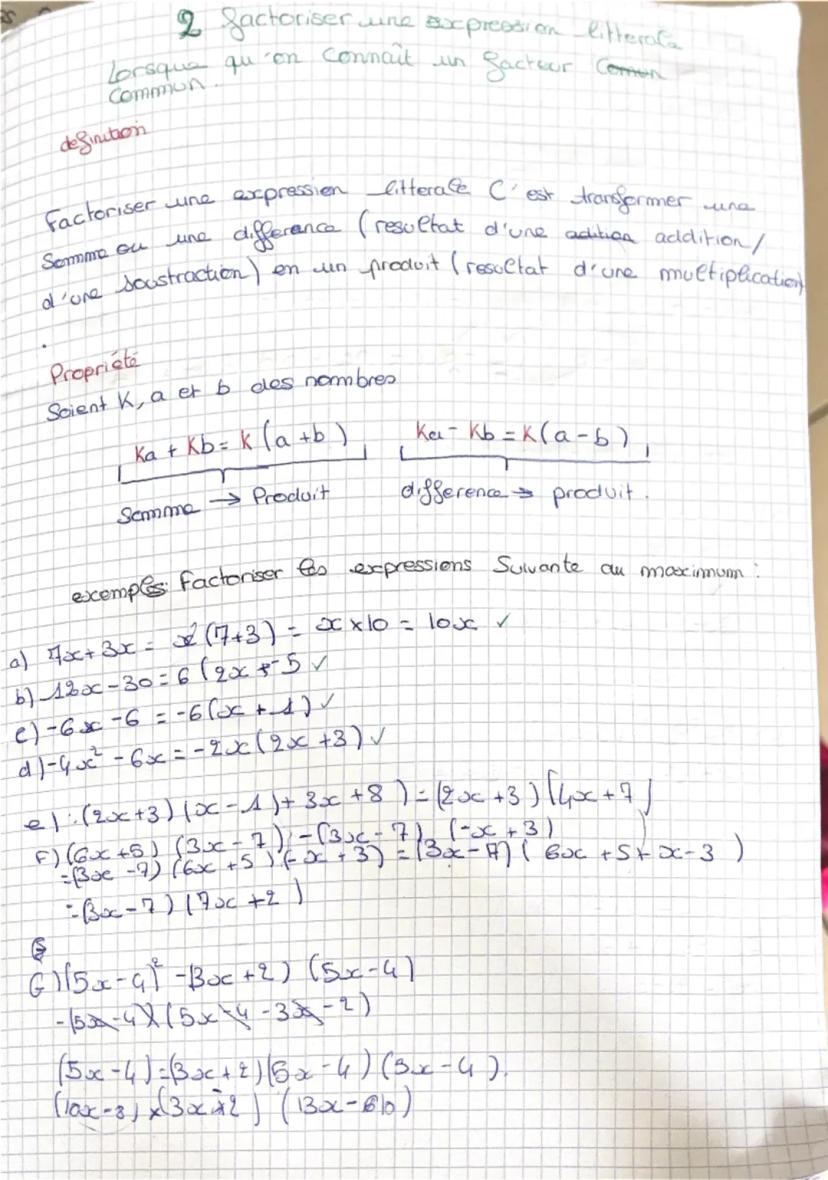 2 Factoriser une expression litterale
Lorsque qu'on connaît un facteur Comun
Commun.
definition
Factoriser une expression litterale C'est transformer une
Somme ou une difference (resultat d'une addition/
d'une soustraction) en un produit (resultat d'une multiplication)
.
Propriété
Soient K, a et b des nombres
Ka + Kb = K (a + b) Ka - Kb = K (a - b)
Somme → Produit difference → produit.
exemples: Factoriser les expressions Suivante au maximum :
a) 7x + 3x = x (7+3) = x x 10 = 10x ✓
b) 12x - 30 = 6 (2x - 5 ✓
c) -6x - 6 = -6(x + 1) ✓
d) -4x² - 6x = -2x (2x + 3) ✓
e) : (2x+3) (x - 1) + 3x + 8 ) = (2x + 3) (4x + 7)
F) (6x +5) (3x - 7) - (3x - 7) (-x + 3)
= (3x - 7) (6x + 5) (-x + 3) = (3x - 7) ( 6x + 5 + x - 3 )
= (3x - 7) (7x + 2)
G) (5x - 4)² - (3x + 2) (5x - 4)
- (5x - 4) (5x - 4 - 3x - 2)
(5x - 4) = (3x + 2) (5x - 4) (3x - 4).
(10x - 8) x (3x + 2) (13x - 610)